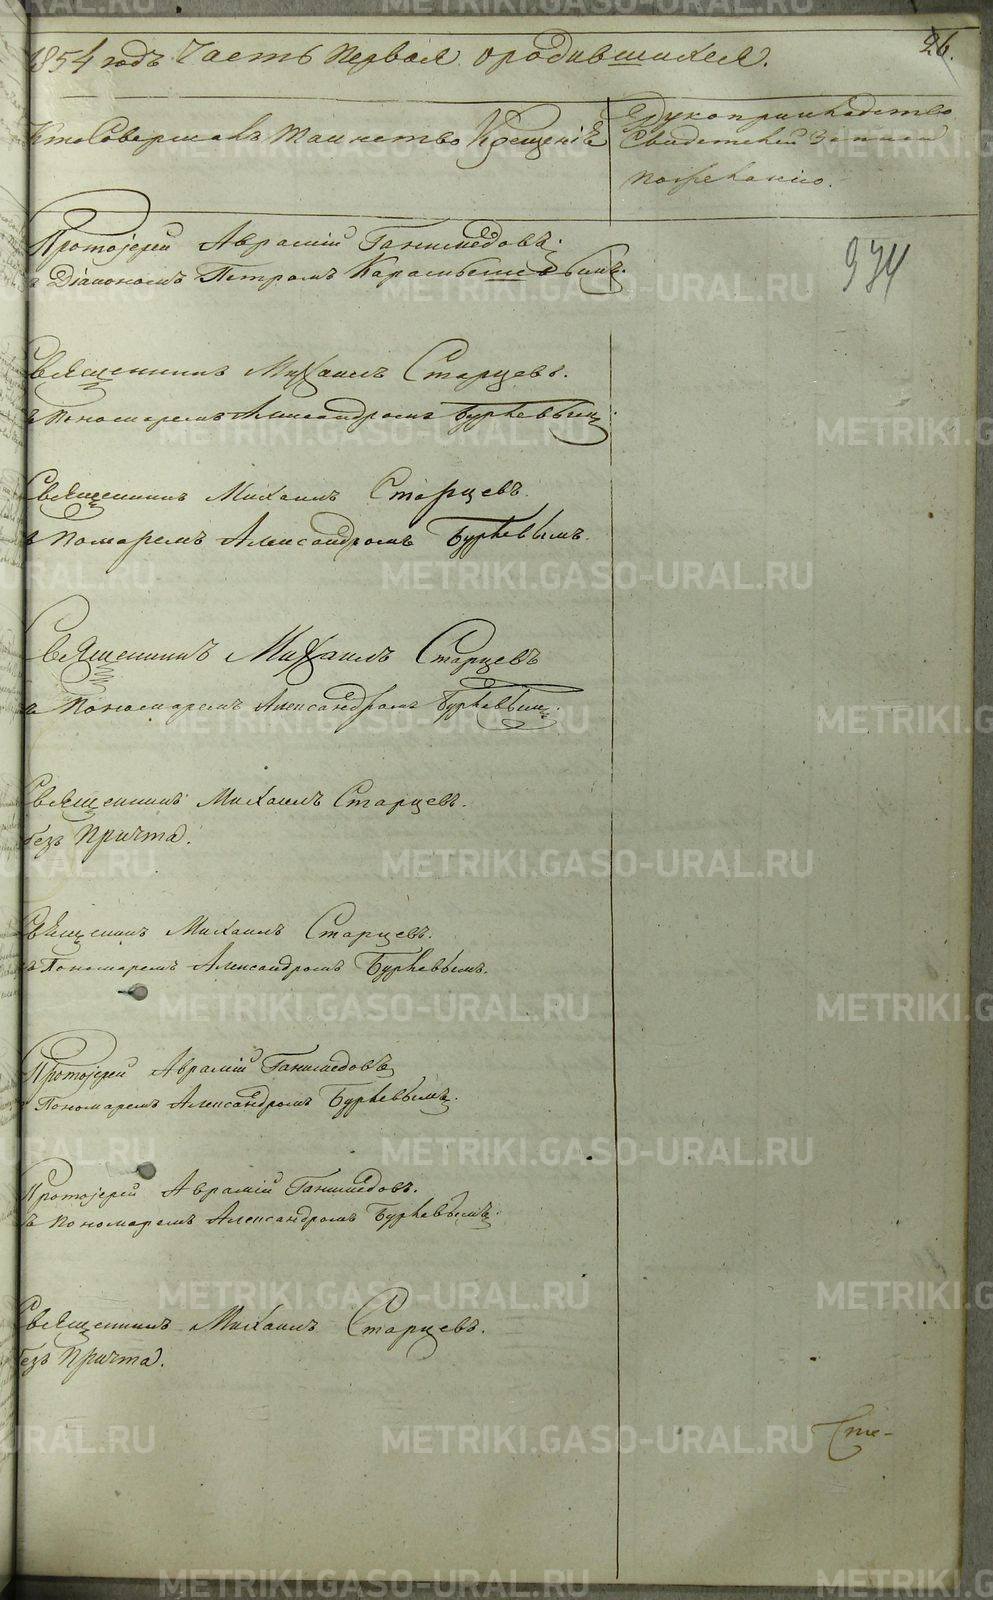 26.
1854 годъ Часть Первая о родившихся.
Кто Совершалъ Таинство Крещенiе
Рукоприкладство
Свидетелей Записи
по желанiю.
Протоiерей Аврамiй Ганимедовъ.
съ Дiакономъ Петромъ Карамышевымъ.
934
Священникъ Михаилъ Старцевъ.
съ Пономаремъ Александромъ Буркевымъ.
Священникъ Михаилъ Старцевъ.
съ Помаремъ Александромъ Буркевымъ.
Священникъ Михаилъ Старцевъ
съ Пономаремъ Александромъ Буркевымъ.
Священникъ Михаилъ Старцевъ.
безъ Причта.
Священникъ Михаилъ Старцевъ.
съ Пономаремъ Александромъ Буркевымъ.
Протоiерей Аврамiй Ганимедовъ
Пономаремъ Александромъ Буркевымъ.
Протоiерей Аврамiй Ганимедовъ.
съ Пономаремъ Александромъ Буркевымъ.
Священникъ Михаилъ Старцевъ.
безъ Причта.
Сте-
METRIKI.GASO-URAL.RU